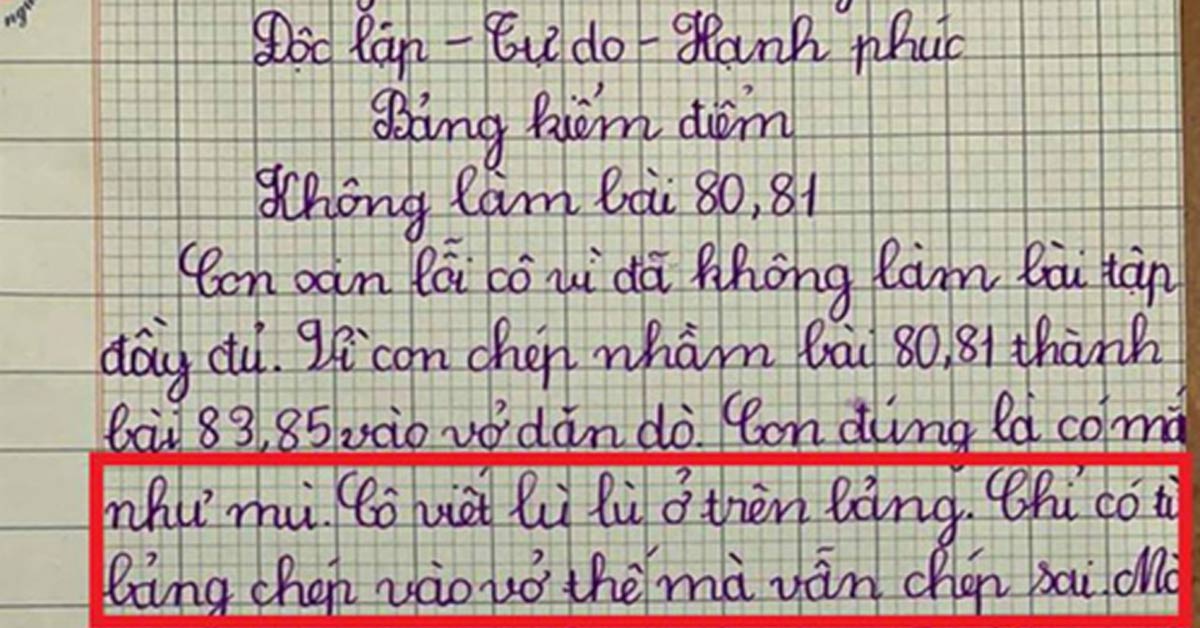 Độc lập - Tự do - Hạnh phúc
Bảng kiểm điểm
Không làm bài 80,81
Con xin lỗi cô vì đã không làm bài tập
đầy đủ. Vì con chép nhầm bài 80,81 thành
bài 83,85 vào vở dặn dò. Con đúng là có mắ
như mù. Cô viết lù lù ở trên bảng. Chỉ có từ
bảng chép vào vở thế mà vẫn chép sai. Mà